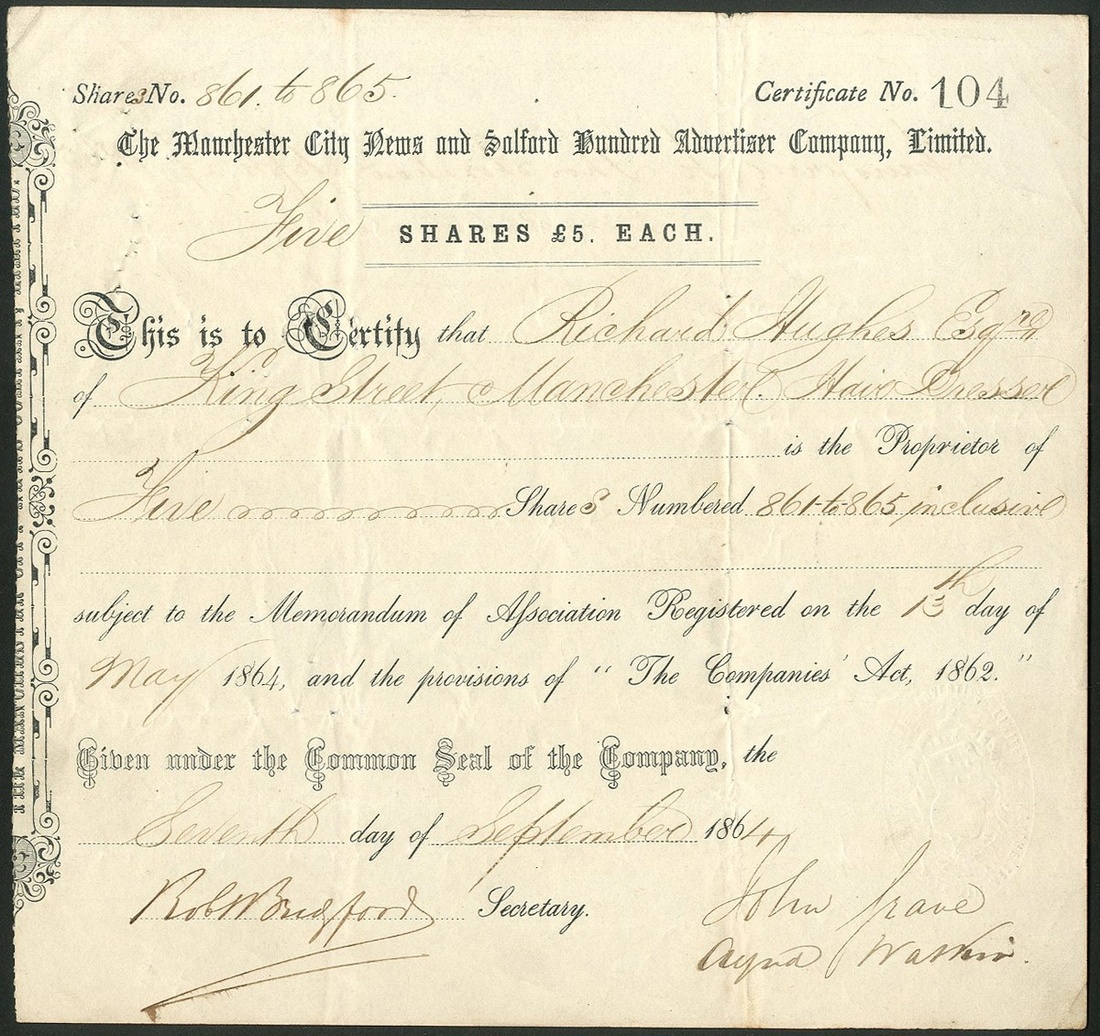 Shares No. 861. to 865.
Certificate No. 104
The Manchester City News and Salford Hundred Advertiser Company, Limited.
Five SHARES £5. EACH.
This is to Certify that Richard Hughes Esqre
of King Street, Manchester. Hair Dresser
is the Proprietor of
Five Shares Numbered 861 to 865 inclusive
subject to the Memorandum of Association Registered on the 13th day of
May 1864, and the provisions of "The Companies' Act, 1862."
Given under the Common Seal of the Company, the
Seventh day of September 1864
Robt Bridgford Secretary.
John Grave
Watkin.